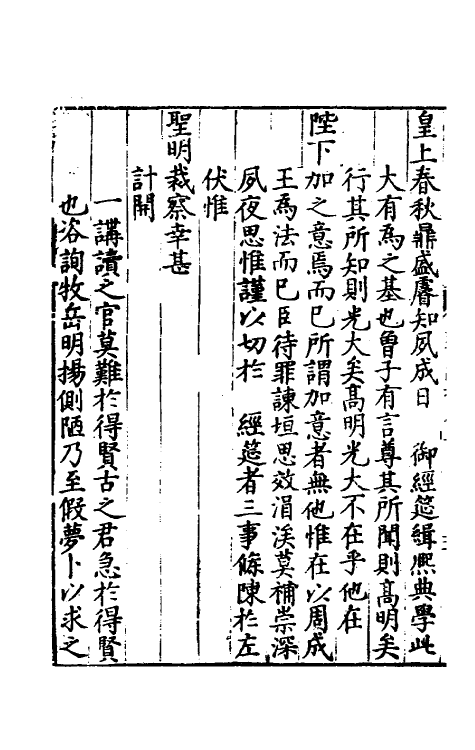 皇上春秋鼎盛睿知夙成日　御經筵緝熙典學此
大有爲之基也曾子有言尊其所聞則高明矣
行其所知則光大矣高明光大不在乎他在
陛下加之意焉而已所謂加意者無他惟在以周成
王爲法而已臣待罪諫垣思效涓涘莫補崇深
夙夜思惟謹以切於　經筵者三事條陳於左
伏惟
聖明裁察幸甚
計開
一講讀之官莫難於得賢古之君急於得賢
也咨詢牧岳明揚側陋乃至假夢卜以求之